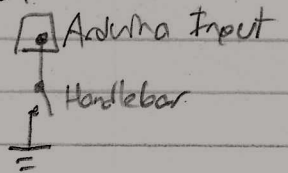 Arduino Input
Handlebar